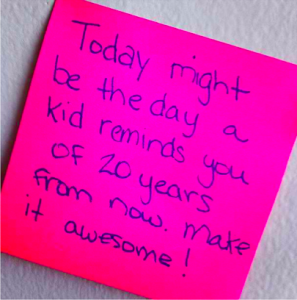 Today might
be the day a
kid reminds you
of 20 years
from now. make
it awesome!